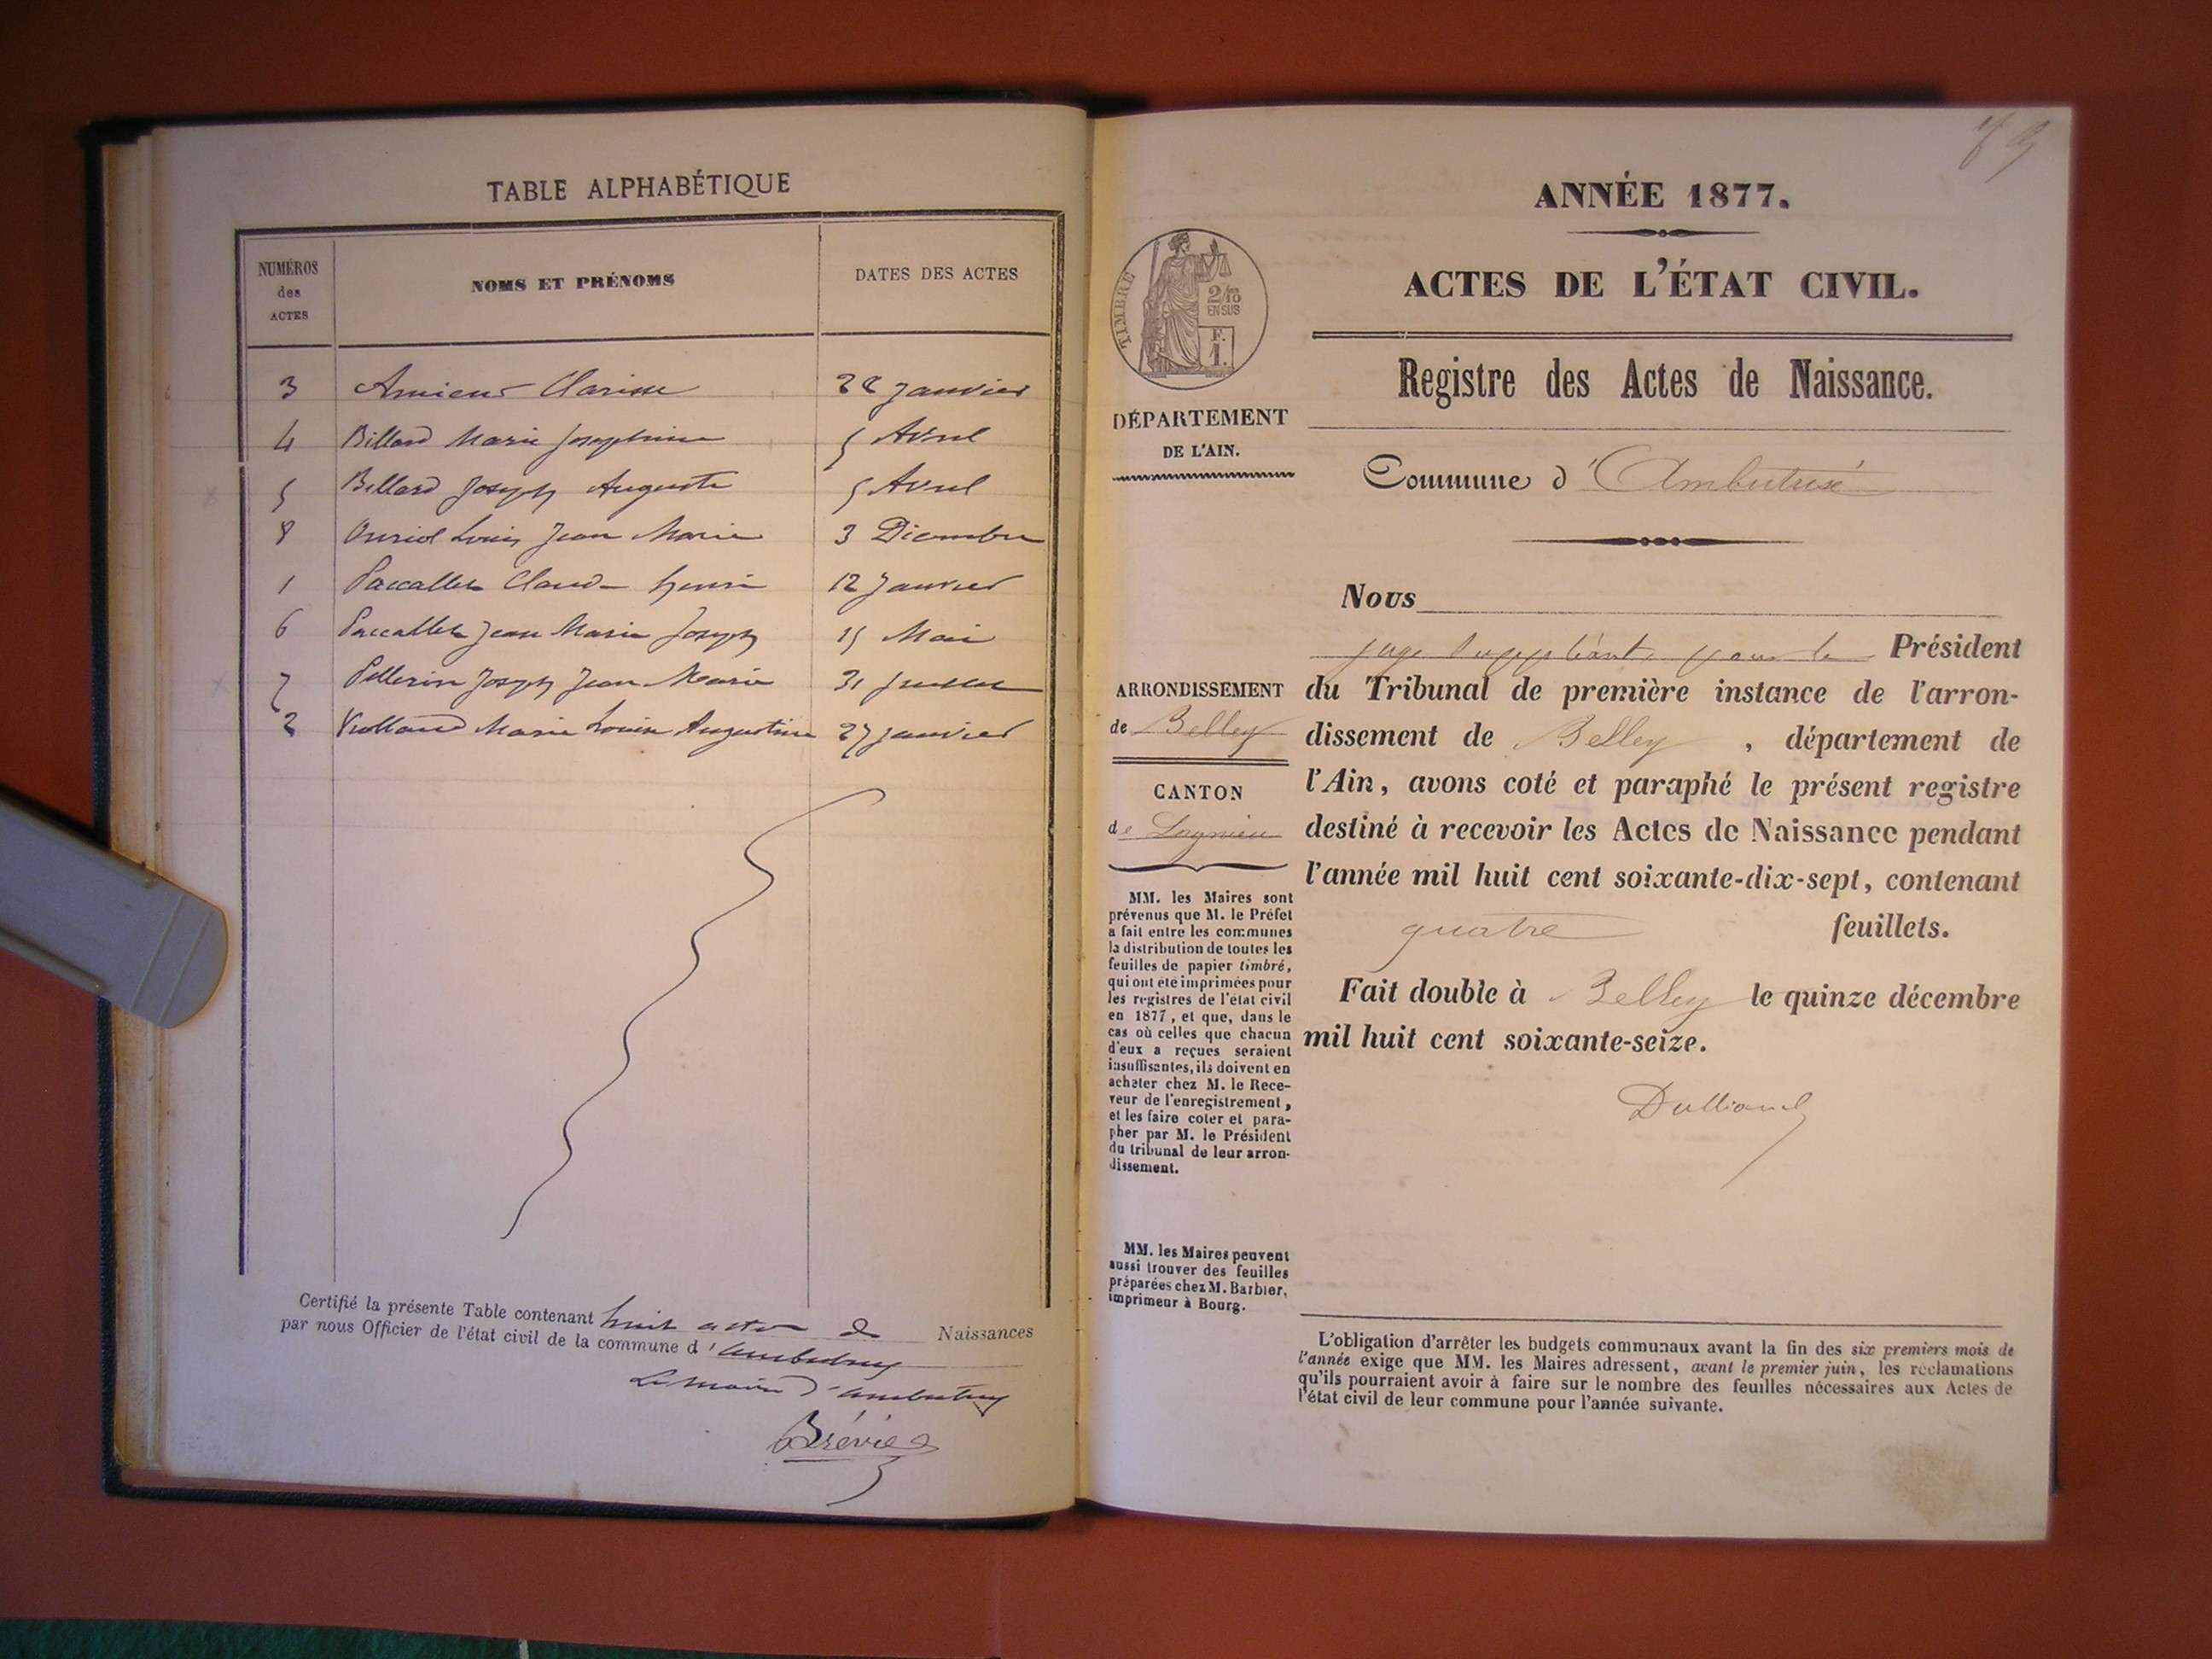 TABLE ALPHABÉTIQUE
NUMÉROS
des
ACTES
NOMS ET PRÉNOMS
DATES DES ACTES
3 Amieux Clarisse 28 Janvier
4 Billard Marie Josephine 5 Avril
5 Billard Joseph Auguste 5 Avril
8 Louis Jean Marie 3 Décembre
1 Paccallet Claude henri 12 Janvier
6 Paccallet Jean Marie Joseph 15 Mai
7 Pellerin Joseph Jean Marie 31 Juillet
2 Violland Marie Louise Augustine 27 Janvier
Certifié la présente Table contenant huit actes de Naissances
par nous Officier de l'état civil de la commune d'Ambutrix
Le maire d'ambutrix
ANNÉE 1877.
ACTES DE L'ÉTAT CIVIL.
TIMBRE
2/10
EN SUS
F.
1.
Registre des Actes de Naissance.
DÉPARTEMENT
DE L'AIN.
Commune d'
Nous
juge Suppléant, pour le Président
du Tribunal de première instance de l'arron-
dissement de Belley, département de
l'Ain, avons coté et paraphé le présent registre
destiné à recevoir les Actes de Naissance pendant
l'année mil huit cent soixante-dix-sept, contenant
quatre feuillets.
Fait double à Belley le quinze décembre
mil huit cent soixante-seize.
ARRONDISSEMENT
de Belley
CANTON
de Lagnieu
MM. les Maires sont
prévenus que M. le Préfet
a fait entre les communes
la distribution de toutes les
feuilles de papier timbré,
qui ont été imprimées pour
les registres de l'état civil
en 1877, et que, dans le
cas où celles que chacun
d'eux a reçues seraient
insuffisantes, ils doivent en
acheter chez M. le Rece-
veur de l'enregistrement,
et les faire coter et para-
pher par M. le Président
du tribunal de leur arron-
dissement.
MM. les Maires peuvent
aussi trouver des feuilles
préparées chez M. Barbier,
imprimeur à Bourg.
L'obligation d'arrêter les budgets communaux avant la fin des six premiers mois de
l'année exige que MM. les Maires adressent, avant le premier juin, les réclamations
qu'ils pourraient avoir à faire sur le nombre des feuilles nécessaires aux Actes de
l'état civil de leur commune pour l'année suivante.